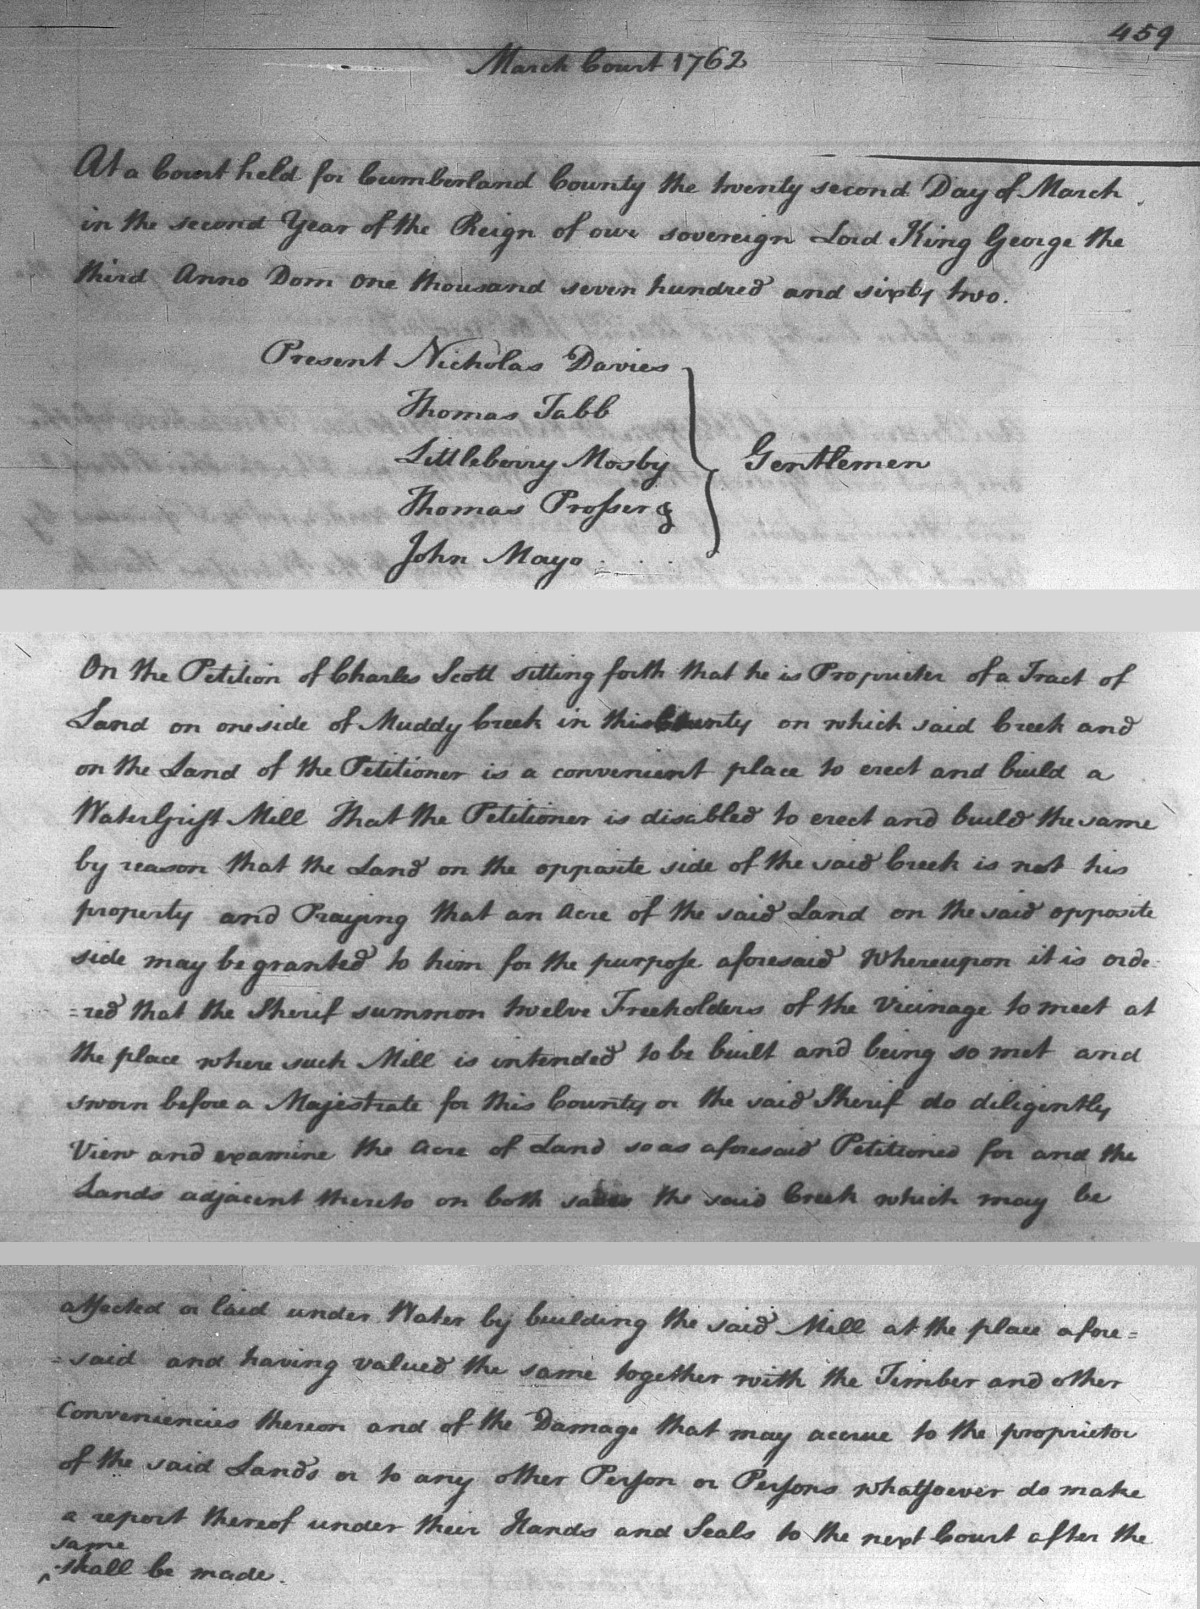 459
March Court 1762
At a Court held for Cumberland County the twenty second Day of March
in the second Year of the Reign of our sovereign Lord King George the
third Anno Dom one thousand seven hundred and sixty two.
Present Nicholas Davies
Thomas Tabb
Littleberry Mosby
Gentlemen
Thomas Prosser &
John Mayo
On the Petition of Charles Scott sitting forth that he is Proprieter of a Tract of
Land on one side of Muddy Creek in this County on which said Creek and
on the Land of the Petitioner is a convenient place to erect and build a
Water Grist Mill That the Petitioner is disabled to erect and build the same
by reason that the Land on the opposite side of the said Creek is not his
property and Praying that an Acre of the said Land on the said opposite
side may be granted to him for the purpose aforesaid Whereupon it is orde-
=red that the Sherif summon twelve Freeholders of the Vicinage to meet at
the place where such Mill is intended to be built and being so met and
sworn before a Majestrate for this County or the said Sherif do diligently
View and examine the Acre of Land so as aforesaid Petitioned for and the
Lands adjacent thereto on both the said Creek which may be
affected or laid under Water by building the said Mill at the place afore=
=said and having valued the same together with the Timber and other
Conveniencies thereon and of the Damage that may accrue to the proprietor
of the said Lands or to any other Person or Persons whatsoever do make
a report thereof under their Hands and Seals to the next Court after the
same
^shall be made.